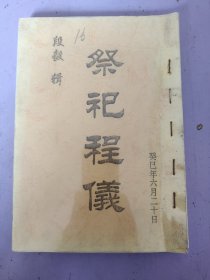 16
祭祀程儀
段毅 輯
癸巳年六月二十日